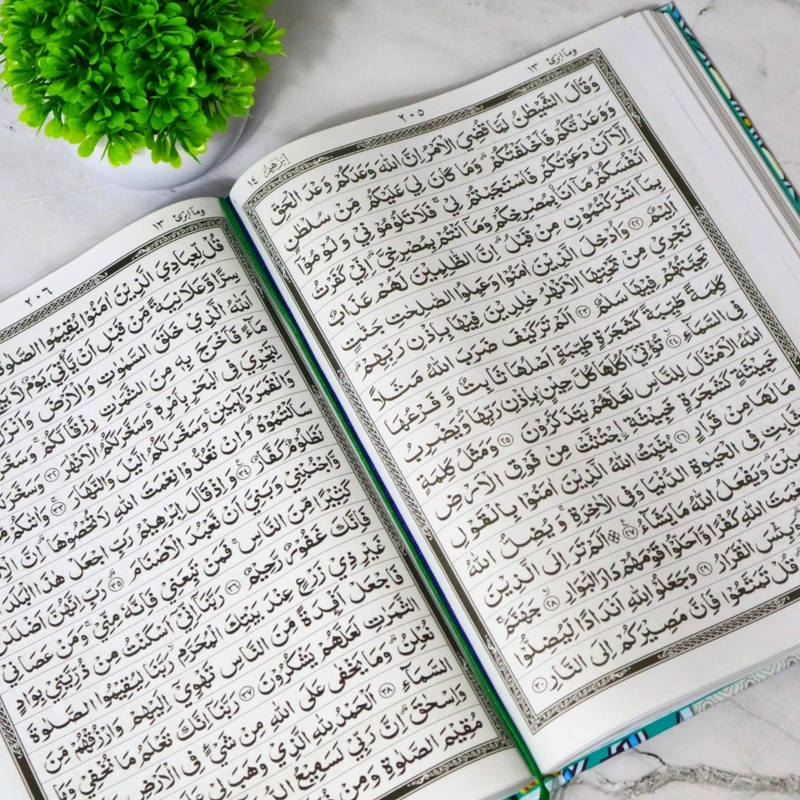 وما ابرئ ١٣
٢٠٥
ابرٰهيم ١٤
وَقَالَ الشَّيْطٰنُ لَمَّا قُضِيَ الْاَمْرُ اِنَّ اللّٰهَ وَعَدَكُمْ وَعْدَ الْحَقِّ
وَوَعَدْتُّكُمْ فَاَخْلَفْتُكُمْ ؕ وَمَا كَانَ لِيَ عَلَيْكُمْ مِّنْ سُلْطٰنٍ
اِلَّاۤ اَنْ دَعَوْتُكُمْ فَاسْتَجَبْتُمْ لِيْ ۚ فَلَا تَلُوْمُوْنِيْ وَلُوْمُوْۤا
اَنْفُسَكُمْ ؕ مَاۤ اَنَا بِمُصْرِخِكُمْ وَمَاۤ اَنْتُمْ بِمُصْرِخِيَّ ؕ اِنِّيْ كَفَرْتُ
بِمَاۤ اَشْرَكْتُمُوْنِ مِنْ قَبْلُ ؕ اِنَّ الظّٰلِمِيْنَ لَهُمْ عَذَابٌ
اَلِيْمٌ ٢٢ وَاُدْخِلَ الَّذِيْنَ اٰمَنُوْا وَعَمِلُوا الصّٰلِحٰتِ جَنّٰتٍ
تَجْرِيْ مِنْ تَحْتِهَا الْاَنْهٰرُ خٰلِدِيْنَ فِيْهَا بِاِذْنِ رَبِّهِمْ ؕ
تَحِيَّتُهُمْ فِيْهَا سَلٰمٌ ٢٣ اَلَمْ تَرَ كَيْفَ ضَرَبَ اللّٰهُ مَثَلًا
كَلِمَةً طَيِّبَةً كَشَجَرَةٍ طَيِّبَةٍ اَصْلُهَا ثَابِتٌ وَّفَرْعُهَا
فِي السَّمَآءِ ٢٤ تُؤْتِيْۤ اُكُلَهَا كُلَّ حِيْنٍۢ بِاِذْنِ رَبِّهَا ؕ وَيَضْرِبُ
اللّٰهُ الْاَمْثَالَ لِلنَّاسِ لَعَلَّهُمْ يَتَذَكَّرُوْنَ ٢٥ وَمَثَلُ كَلِمَةٍ
خَبِيْثَةٍ كَشَجَرَةٍ خَبِيْثَةِ ِۨاجْتُثَّتْ مِنْ فَوْقِ الْاَرْضِ
مَا لَهَا مِنْ قَرَارٍ ٢٦ يُثَبِّتُ اللّٰهُ الَّذِيْنَ اٰمَنُوْا بِالْقَوْلِ
الثَّابِتِ فِي الْحَيٰوةِ الدُّنْيَا وَفِي الْاٰخِرَةِ ۚ وَيُضِلُّ اللّٰهُ
وَيَفْعَلُ اللّٰهُ مَا يَشَآءُ ٢٧ اَلَمْ تَرَ اِلَى الَّذِيْنَ
اللّٰهِ كُفْرًا وَّاَحَلُّوْا قَوْمَهُمْ دَارَ الْبَوَارِ ٢٨ جَهَنَّمَ ۚ
الْقَرَارُ ٢٩ وَجَعَلُوْا لِلّٰهِ اَنْدَادًا لِّيُضِلُّوْا
قُلْ تَمَتَّعُوْا فَاِنَّ مَصِيْرَكُمْ اِلَى النَّارِ ٣٠
وما ابرئ ١٣
٢٠٦
قُلْ لِّعِبَادِيَ الَّذِيْنَ اٰمَنُوْا يُقِيْمُوا الصَّلٰوةَ
سِرًّا وَّعَلَانِيَةً مِّنْ قَبْلِ اَنْ يَّاْتِيَ يَوْمٌ
اَللّٰهُ الَّذِيْ خَلَقَ السَّمٰوٰتِ وَالْاَرْضَ وَاَنْزَلَ
مَآءً فَاَخْرَجَ بِهٖ مِنَ الثَّمَرٰتِ رِزْقًا لَّكُمْ ۚ
لِتَجْرِيَ فِي الْبَحْرِ بِاَمْرِهٖ ۚ وَسَخَّرَ لَكُمُ الْاَنْهٰرَ ٣٢ وَسَخَّرَ
وَالْقَمَرَ دَآئِبَيْنِ ۚ وَسَخَّرَ لَكُمُ الَّيْلَ وَالنَّهَارَ ٣٣ وَاٰتٰىكُمْ
سَاَلْتُمُوْهُ ؕ وَاِنْ تَعُدُّوْا نِعْمَتَ اللّٰهِ لَا تُحْصُوْهَا ؕ اِنَّ
لَظَلُوْمٌ كَفَّارٌ ٣٤ وَاِذْ قَالَ اِبْرٰهِيْمُ رَبِّ اجْعَلْ هٰذَا الْبَلَدَ
وَّاجْنُبْنِيْ وَبَنِيَّ اَنْ نَّعْبُدَ الْاَصْنَامَ ٣٥ رَبِّ اِنَّهُنَّ اَضْلَلْنَ
كَثِيْرًا مِّنَ النَّاسِ ۚ فَمَنْ تَبِعَنِيْ فَاِنَّهٗ مِنِّيْ ۚ وَمَنْ عَصَانِيْ
فَاِنَّكَ غَفُوْرٌ رَّحِيْمٌ ٣٦ رَبَّنَاۤ اِنِّيْۤ اَسْكَنْتُ مِنْ ذُرِّيَّتِيْ بِوَادٍ
غَيْرِ ذِيْ زَرْعٍ عِنْدَ بَيْتِكَ الْمُحَرَّمِ ۙ رَبَّنَا لِيُقِيْمُوا الصَّلٰوةَ
فَاجْعَلْ اَفْـِٕدَةً مِّنَ النَّاسِ تَهْوِيْۤ اِلَيْهِمْ وَارْزُقْهُمْ مِّنَ
الثَّمَرٰتِ لَعَلَّهُمْ يَشْكُرُوْنَ ٣٧ رَبَّنَاۤ اِنَّكَ تَعْلَمُ مَا نُخْفِيْ وَمَا
نُعْلِنُ ؕ وَمَا يَخْفٰى عَلَى اللّٰهِ مِنْ شَيْءٍ فِي الْاَرْضِ
السَّمَآءِ ٣٨ اَلْحَمْدُ لِلّٰهِ الَّذِيْ وَهَبَ لِيْ عَلَى
وَاِسْحٰقَ ؕ اِنَّ رَبِّيْ لَسَمِيْعُ
مُقِيْمَ الصَّلٰوةِ وَمِنْ